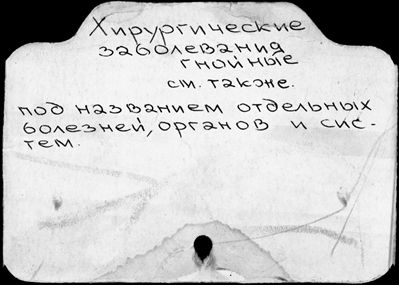 Хирургические
заболевания
гнойные
см. также.
под названием отдельных
болезней, органов и сис-
тем.